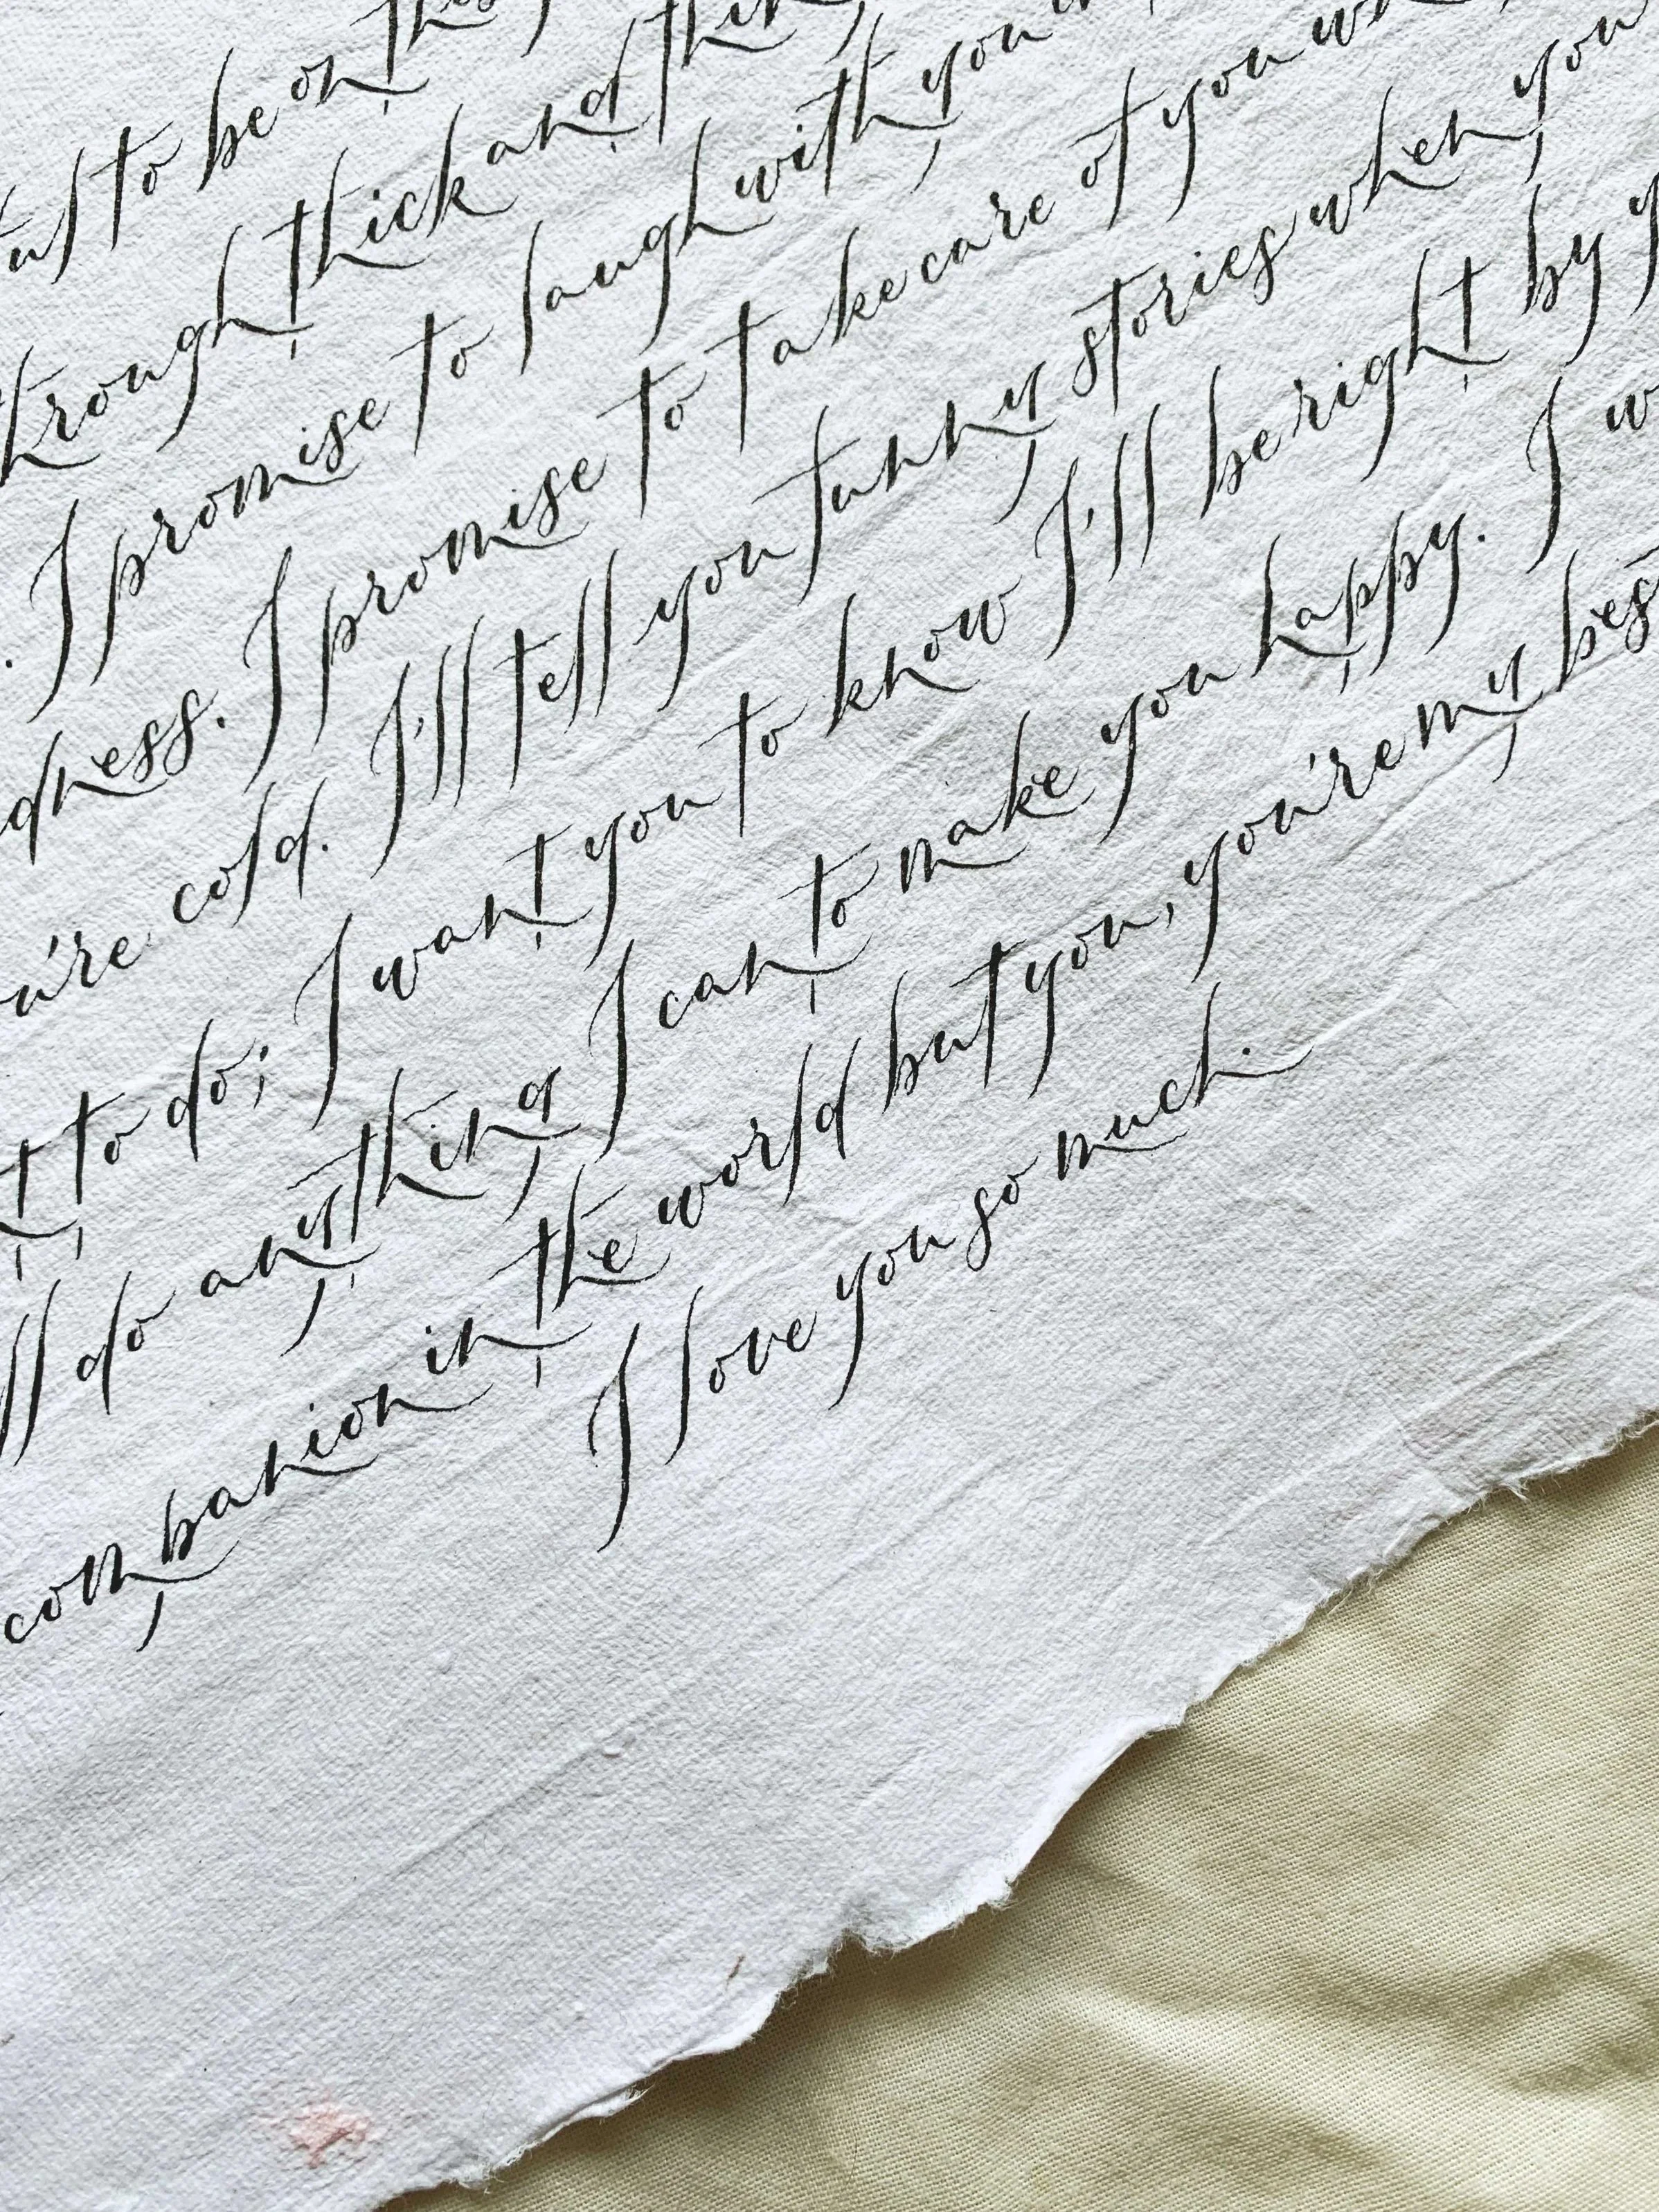 to be on this
through thick and thin
. I promise to laugh with you
dness. I promise to take care of you
u're cold. I'll tell you funny stories when you
t to do; I want you to know I'll be right by
ll do anything I can to make you happy. I w
companion in the world but you, you're my bes
I love you so much.